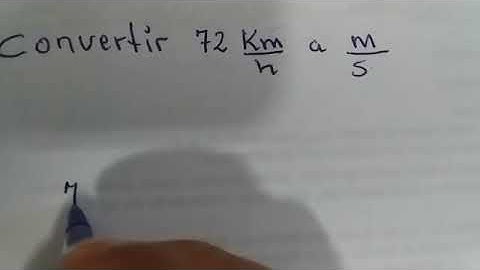 Convertir 72 Km/h a m/s